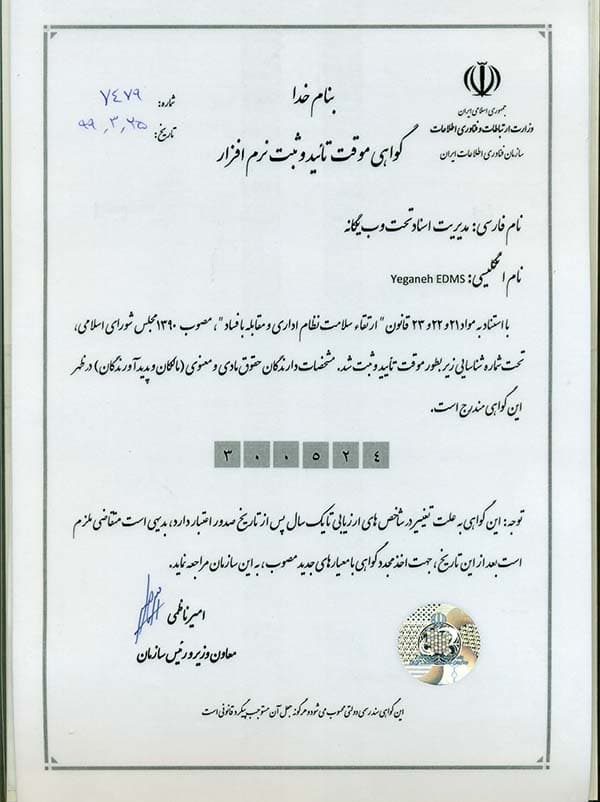 بنام خدا
جمهوری اسلامی ایران
وزارت ارتباطات و فناوری اطلاعات
سازمان فناوری اطلاعات ایران
شماره: ۷۴۷۹
تاریخ: ۹۹,۳,۲۵
گواهی موقت تائید و ثبت نرم افزار
نام فارسی: مدیریت اسناد تحت وب یگانه
نام انگلیسی: Yeganeh EDMS
با استناد به مواد ۲۱ و ۲۲ و ۲۳ قانون " ارتقاء سلامت نظام اداری و مقابله با فساد" ، مصوب ۱۳۹۰ مجلس شورای اسلامی،
تحت شماره شناسایی زیر بطور موقت تأیید و ثبت شد. مشخصات دارندگان حقوق مادی و معنوی (مالکان و پدیدآورندگان) در ظهر
این گواهی مندرج است.
۳ ۰ ۰ ۵ ۲ ٤
توجه: این گواهی به علت تغییر در شاخص های ارزیابی تا یک سال پس از تاریخ صدور اعتبار دارد، بدیهی است متقاضی ملزم
است بعد از این تاریخ ، جهت اخذ مجدد گواهی با معیارهای جدید مصوب، به این سازمان مراجعه نماید.
امیر ناظمی
معاون وزیر و رئیس سازمان
این گواهی سند رسمی دولتی محسوب می شود و هرگونه جعل آن مستوجب پیگرد قانونی است